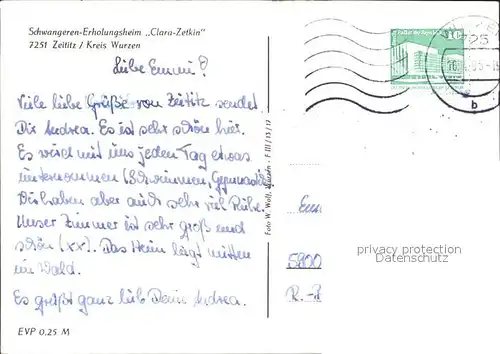 Schwangeren-Erholungsheim „Clara-Zetkin"
7251 Zeititz / Kreis Wurzen
Liebe Emmi!
Viele liebe Grüße von Zeititz sendet
Dir Andrea. Es ist sehr schön hier.
Es wird mit uns jeden Tag etwas
unternommen (Schwimmen, Gymnastik
Wir haben aber auch sehr viel Ruhe.
Unser Zimmer ist sehr groß und
schön (xx). Das Heim liegt mitten
im Wald.
Es grüßt ganz lieb Deine Andrea.
EVP 0,25 M
Foto W. Wolf, Wurzen · F III/13/17
10
725
b
5900
R.-
privacy protection
Datenschutz